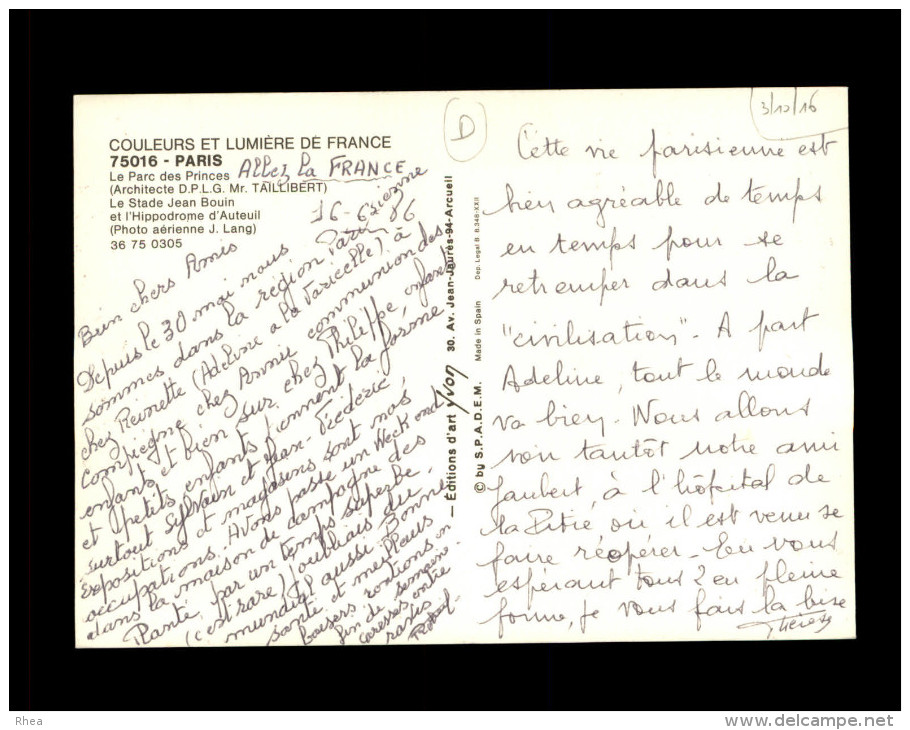 COULEURS ET LUMIÈRE DE FRANCE
75016 - PARIS
Le Parc des Princes
(Architecte D.P.L.G. Mr. TAILLIBERT)
Le Stade Jean Bouin
et l'Hippodrome d'Auteuil
(Photo aérienne J. Lang)
36 75 0305
Allez la FRANCE
16-6-86
Bien chers Amis
Depuis le 30 mai nous
sommes dans la région Parisienne
chez Reinette (Adeline a la Varicelle) à
Compiegne chez Annie communion des
enfants et bien sur chez Philippe, enfants
et petits enfants tiennent la forme
surtout Sylvain et Jean-Fréderic,
Expositions et magasins sont nos
occupations. Avons passé un Week end
dans la maison de campagne des
Planté, par un temps superbe.
(c'est rare) j'oubliais du
mundial aussi. Bonne
santé et meilleurs
baisers rentions en
fin de semaine.
caresses entre
— Éditions d'art Yvon 30. Av. Jean-Jaurès-94-Arcueil
© by S.P.A.D.E.M. Made in Spain Dep. Legal B. 6.348-XXII
D
3/10/16
Cette vie parisienne est
bien agréable de temps
en temps pour se
retremper dans la
"civilisation". A part
Adeline, tout le monde
va bien. Nous allons
voir tantôt notre ami
Jaubert, à l'hôpital de
la Pitié où il est venu se
faire réopérer. En vous
espérant tous 2 en pleine
forme, je vous fais la bise
Thérèse
Rhea
www.delcampe.net